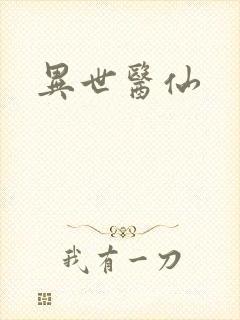 異世醫仙
我有一刀